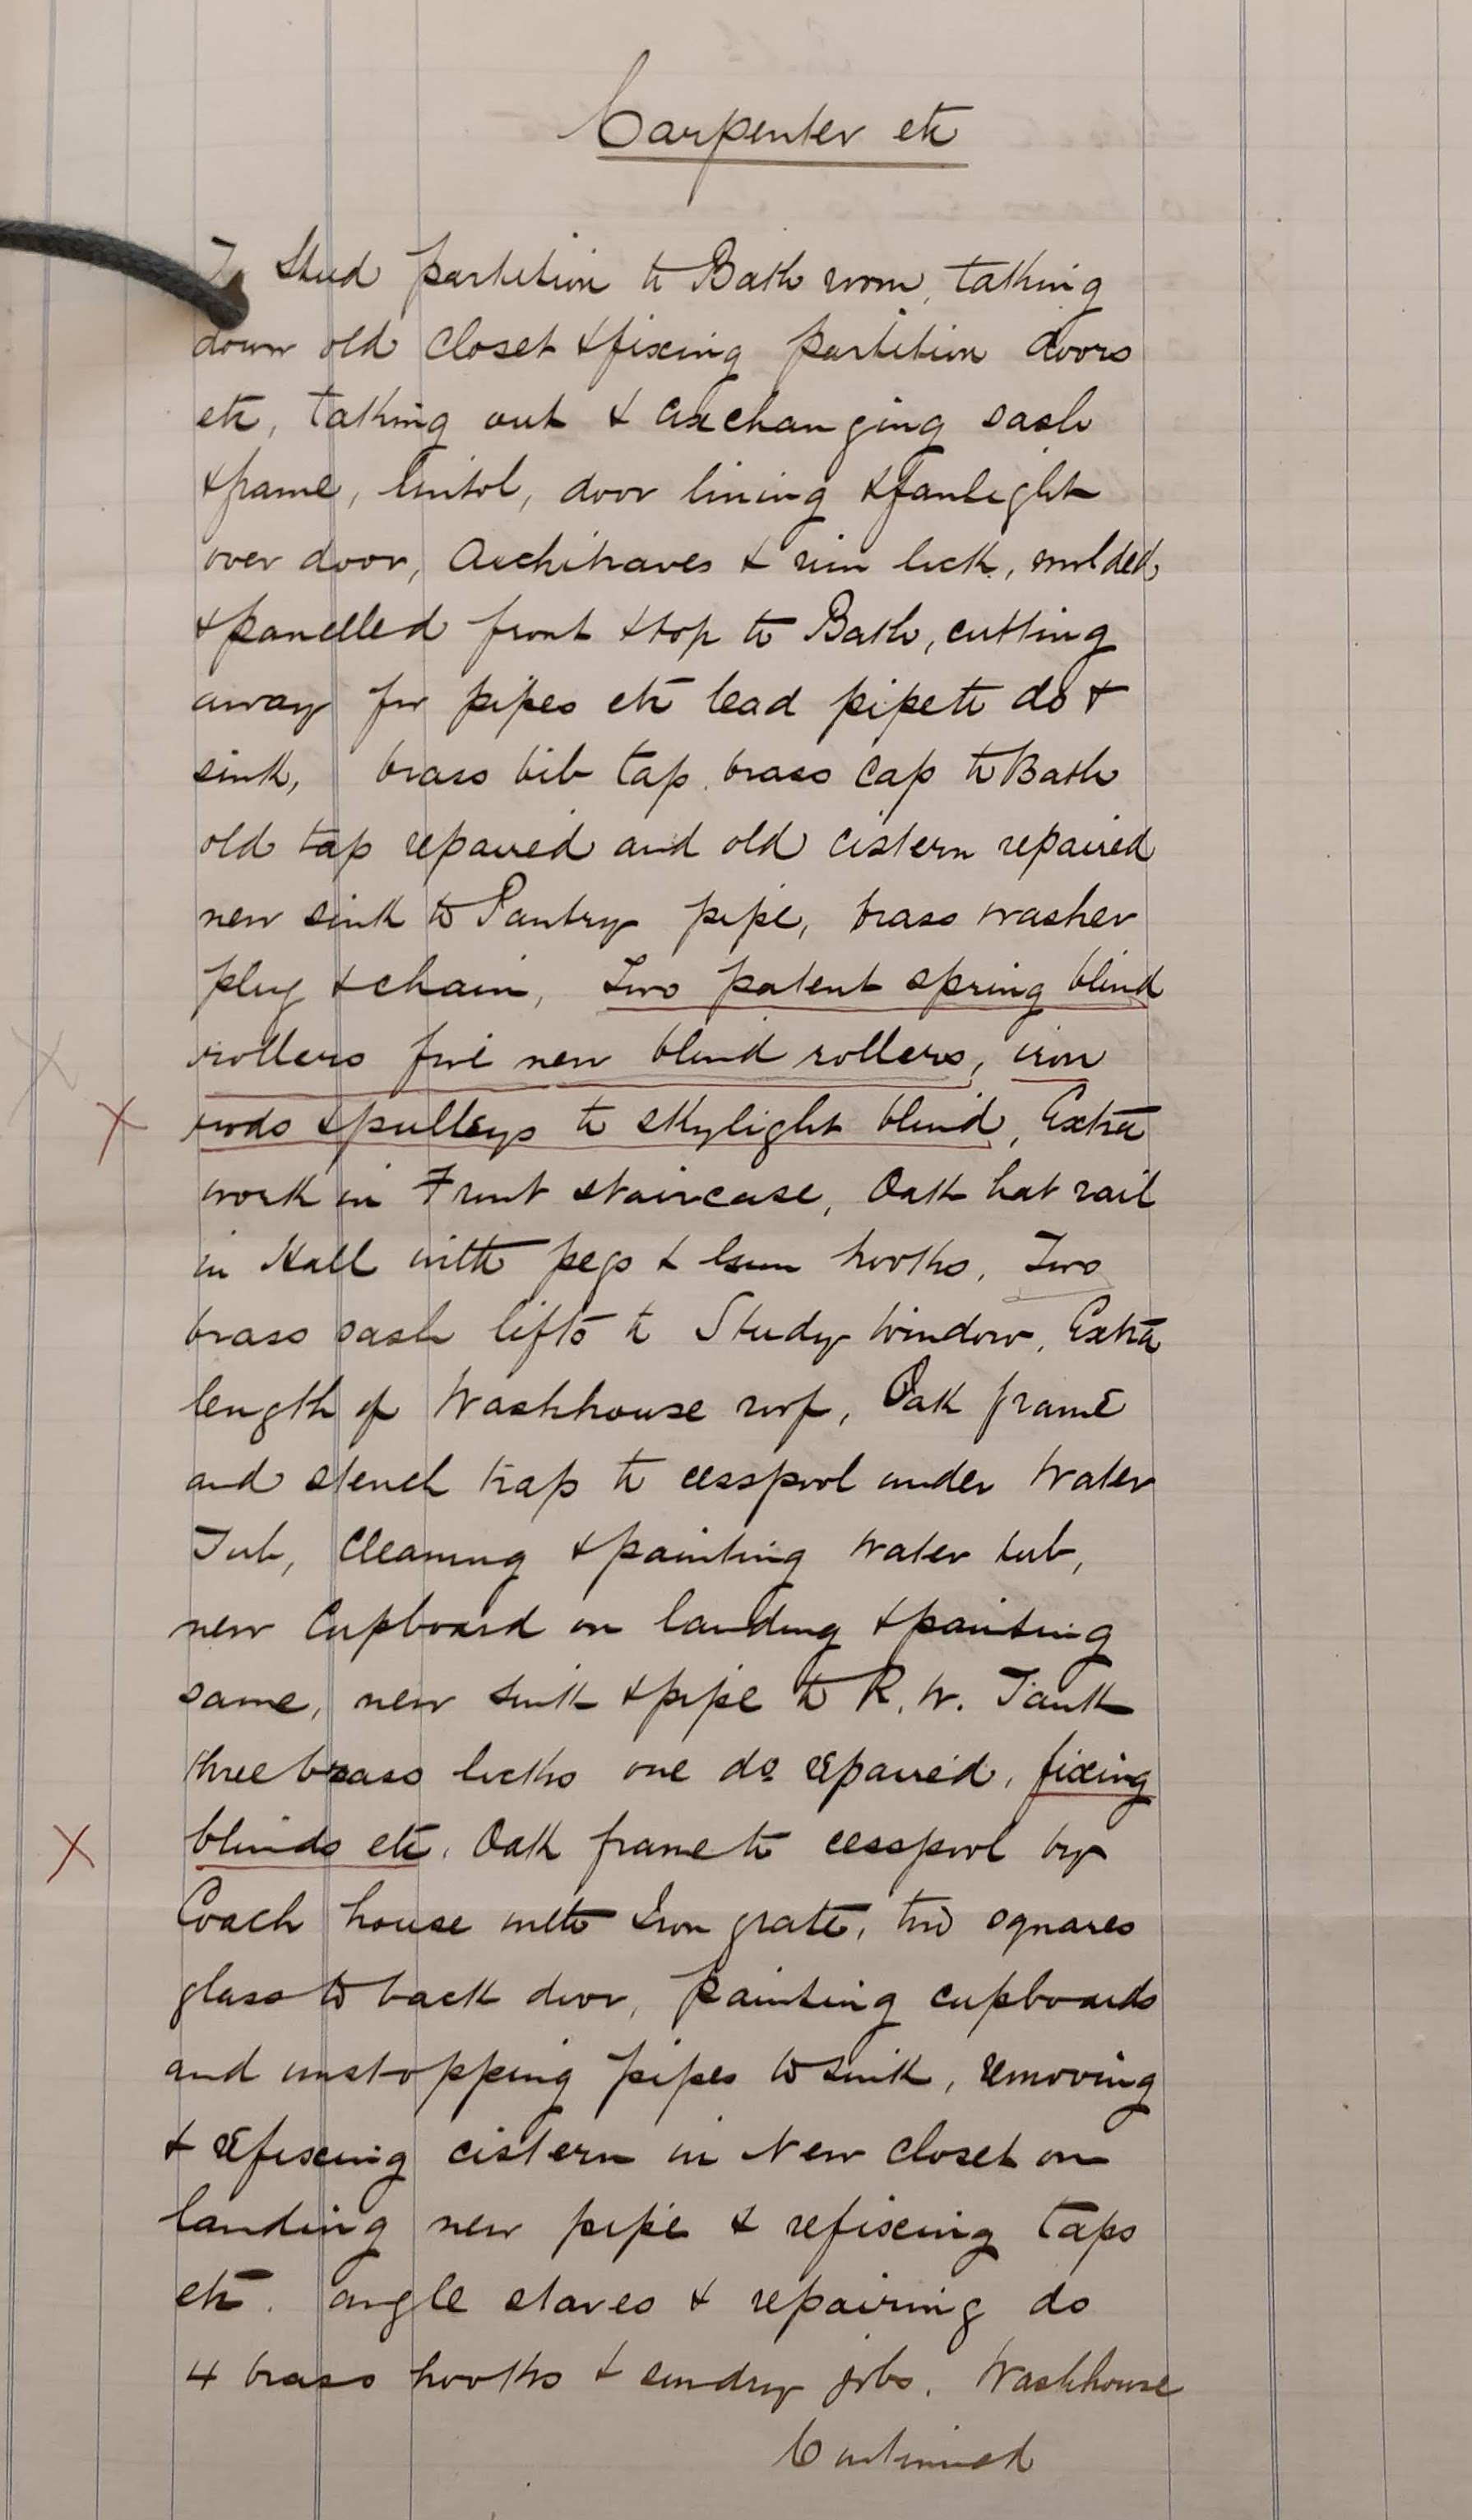 Carpenter etc
To Stud partition to Bath room, taking
down old closet & fixing partition doors
etc, taking out & exchanging sash
& frame, lintol, door lining & fanlight
over door, Architraves & rim lock, molded
& panelled front & top to Bath, cutting
away for pipes etc lead pipe to do &
sink, brass bib tap, brass cap to Bath
old tap repaired and old cistern repaired
new sink to Pantry pipe, brass washer
plug & chain, Two patent spring blind
rollers five new blind rollers, iron
rods & pulleys to skylight blind, Extra
work in Front staircase, Oak hat rail
in Hall with pegs & hooks, Two
brass sash lifts to Study window, Extra
length of Washhouse roof, Oak frame
and stench trap to cesspool under Water
Tub, Cleaning & painting water tub,
new Cupboard on landing & painting
same, new sink & pipe to R. W. Tank
three brass locks one do repaired, fixing
blinds etc. Oak frame to cesspool by
Coach house with Iron grate, two squares
glass to back door, painting cupboards
and unstopping pipes to sink, removing
& refixing cistern in New closet on
landing new pipe & refixing taps
etc. angle staves & repairing do
4 brass hooks & sundry jobs. Washhouse
Continued